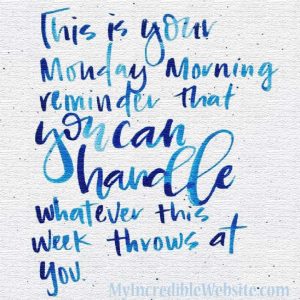 This is your
Monday Morning
reminder that
you can
handle
whatever this
week throws at
you.
MyIncredibleWebsite.com